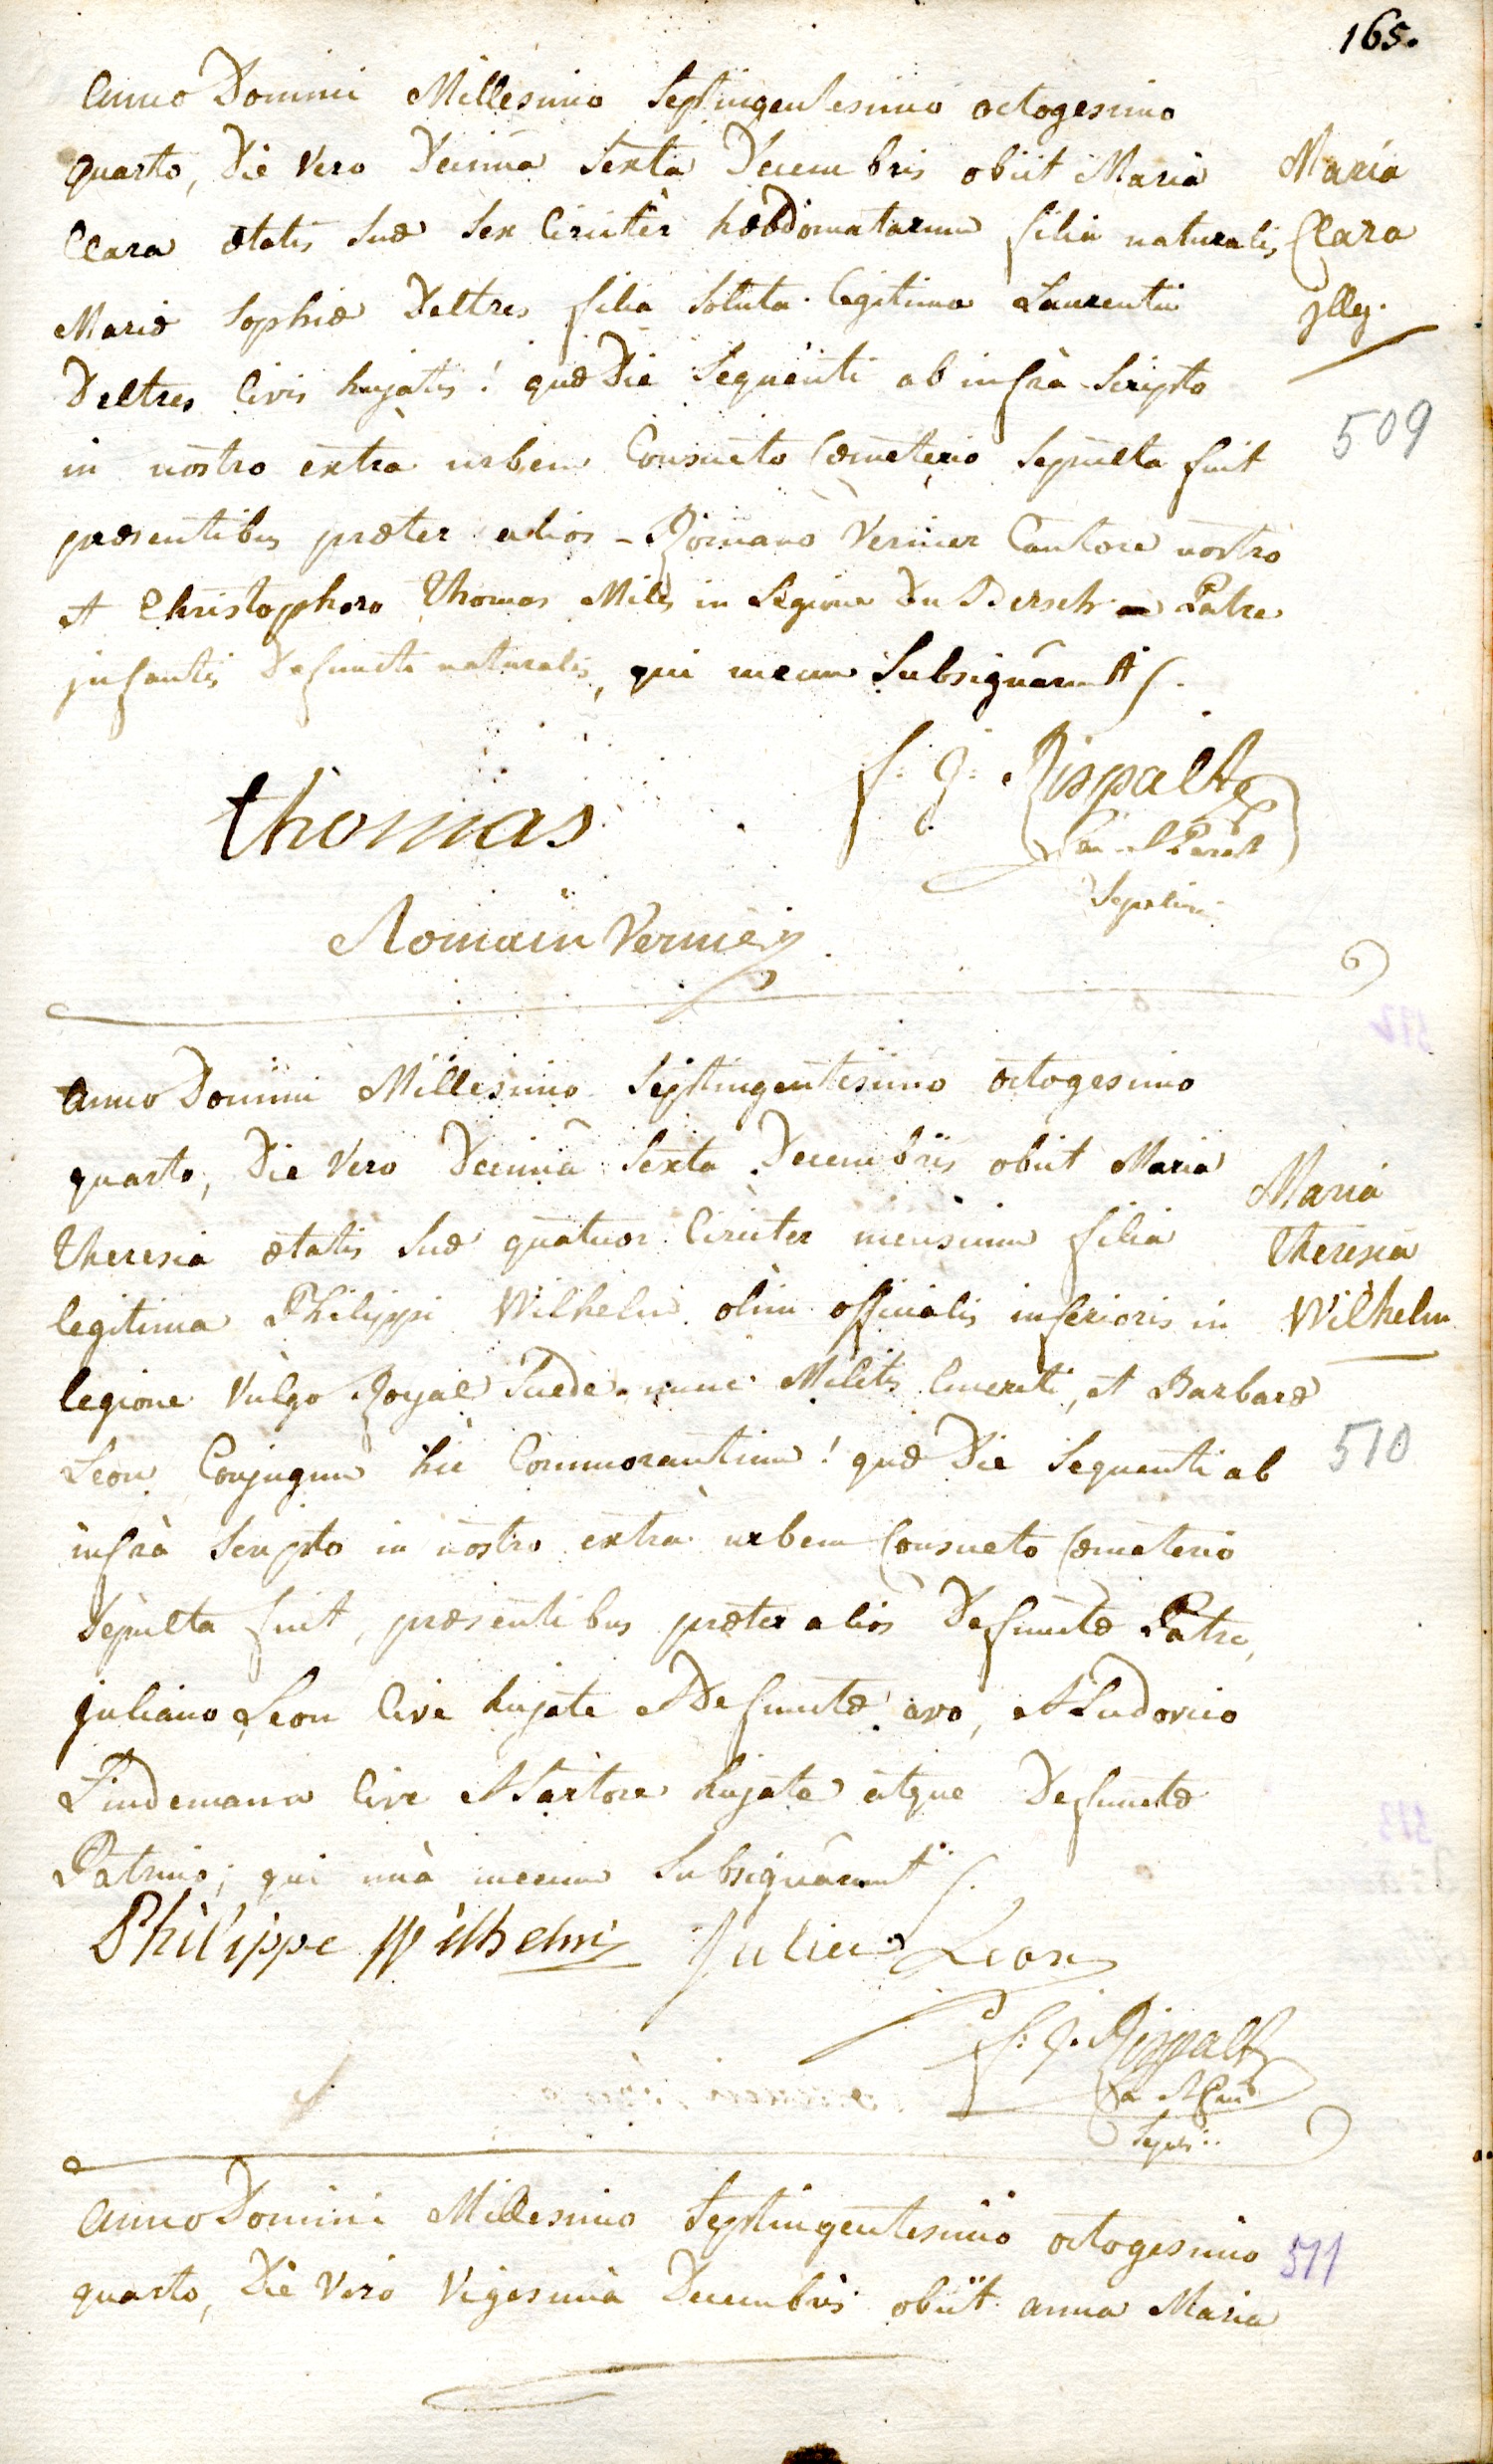 165.
Anno Domini Millesimo Septingentesimo octogesimo
quarto, Die Vero Decima Sexta Decembris obiit Maria
Clara ætatis suæ sex Circiter hæbdomatarum filia naturalis
Maria
Clara
Illeg.
Mariæ Sophiæ Deltres filia soluta legitima Laurentii
Deltres Civis hujatis! quæ Die Sequenti ab infrà Scripto
509
in nostro extrà urbem Consueto Cœmeterio Sepulta fuit
præsentibus præter alios - Romano Vernier Cantore nostro
et Christophoro Thomas Miles in Legione Du Bersch Patre
jnfantis Defuncti naturalis, qui mecum Subsignarunt
thomas
f: J: Rispalt
Romain Vernier
Anno Domini Millesimo Septingentesimo octogesimo
quarto, Die Vero Decimâ Sexta Decembris obiit Maria
Theresia ætatis suæ quatuor Circiter mensium filia
legitima Philippi Wilhelm olim officialis inferioris in
Maria
Theresia
Wilhelm
legione Vulgo Royal Suede nunc Militis Emeriti, et Barbaræ
Leon Conjugum hic Commorantium! quæ Die Sequenti ab
510
infrà Scripto in nostro extrà urbem Consueto Cœmeterio
Sepulta fuit, præsentibus præter alios Defunctæ Patre,
juliano Leon Cive hujate et Defunctæ avo, et Ludovico
Lindemann Cive et Sartore hujate atque Defunctæ
Patrino; qui unà mecum Subsignârunt
Philippe Wilhelm Julien Leon
f: J. Rispalt
Anno Domini Millesimo Septingentesimo octogesimo
511
quarto, Die Vero Vigesimà Decembris obiit anna Maria